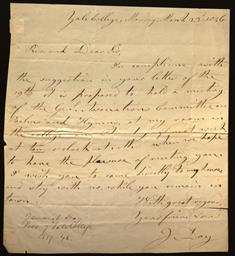 Yale College, Monday, March 23d 1846
Rev. and Dear Sir,
In compliance with
the suggestion in your letter of the
19th it is proposed to hold a meeting
of the Association Committee on
Psalms and Hymns, at my room in
the college next week
at ten o'clock when we hope
to have the pleasure of meeting you.
I wish you to come directly to my house,
and stay with us while you remain in
town.
With great regard,
Your friend
J. Day
Day
Yale College